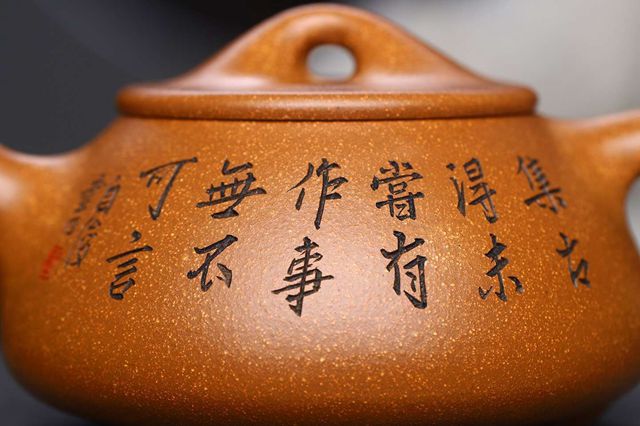 集古
得未
嘗有
作事
無不
可言